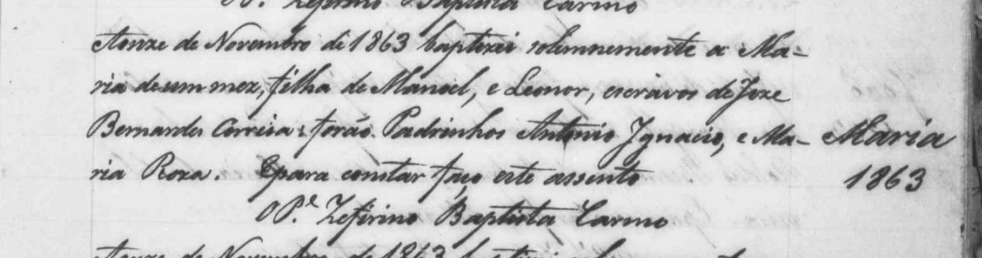 P.e Zefirino Baptista Carmo
Aonze de Novembro de 1863 baptizei solemnemente a Ma-
ria de um mez, filha de Manoel, e Leonor, escravos de Joze
Bernardes Correia: forão Padrinhos Antonio Ignacio, e Ma-
ria Roza. E para constar faço este assento
Maria
1863
O P.e Zefirino Baptista Carmo
Aonze de Novembro de 1863